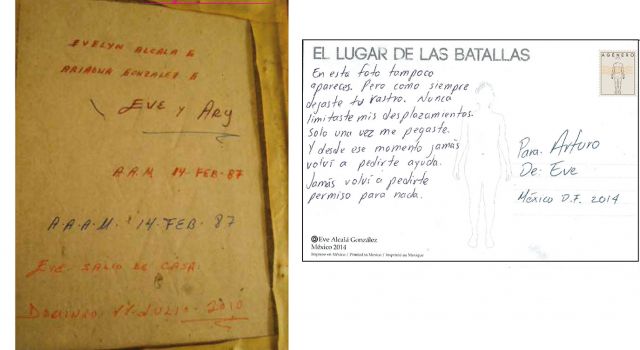 EVELYN ALCALA G
ARIADNA GONZALEZ G
EVE Y ARY
A.A.M 14-FEB-87
A.A.A.M. 14-FEB 87
EVE SALIO DE CASA.
DOMINGO JULIO 2010
EL LUGAR DE LAS BATALLAS
En esta foto tampoco
apareces. Pero como siempre
dejaste tu rastro. Nunca
limitaste mis desplazamientos.
Solo una vez me pegaste.
Y desde ese momento jamás
volví a pedirte ayuda.
Jamás volví a pedirte
permiso para nada.
AGÉNERO
Para: Arturo
De: Eve
México D.F. 2014
© Eve Alcalá González
México 2014
Impreso en México / Printed in Mexico / Imprimé au Mexique